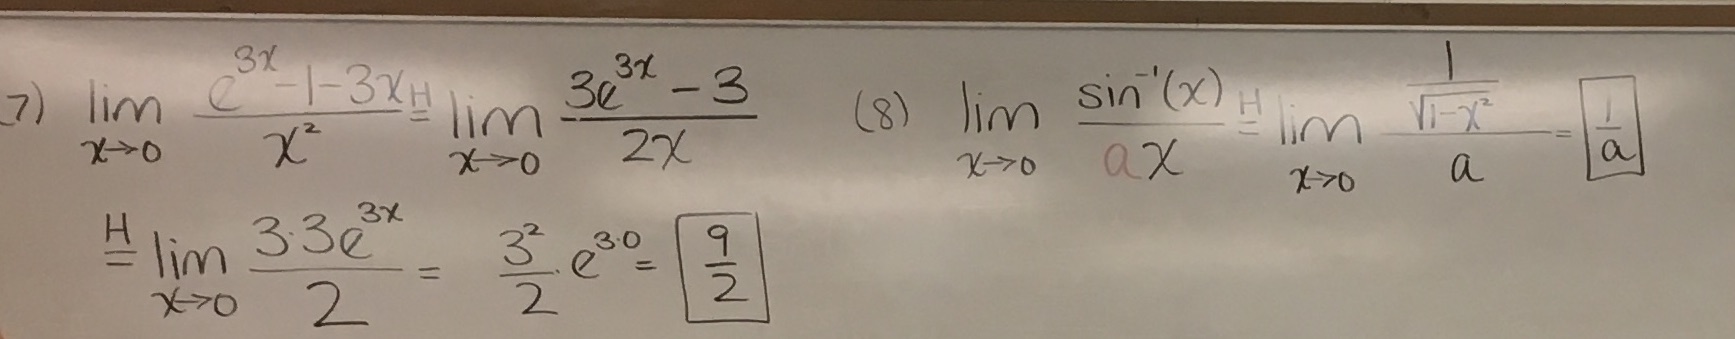 7) lim x→0 (e^{3x}-1-3x)/x² =^H lim x→0 (3e^{3x}-3)/(2x)
=^H lim x→0 (3·3e^{3x})/2 = 3²/2 · e^{3·0} = 9/2
(8) lim x→0 sin⁻¹(x)/(ax) =^H lim x→0 (1/√(1-x²))/a = 1/a